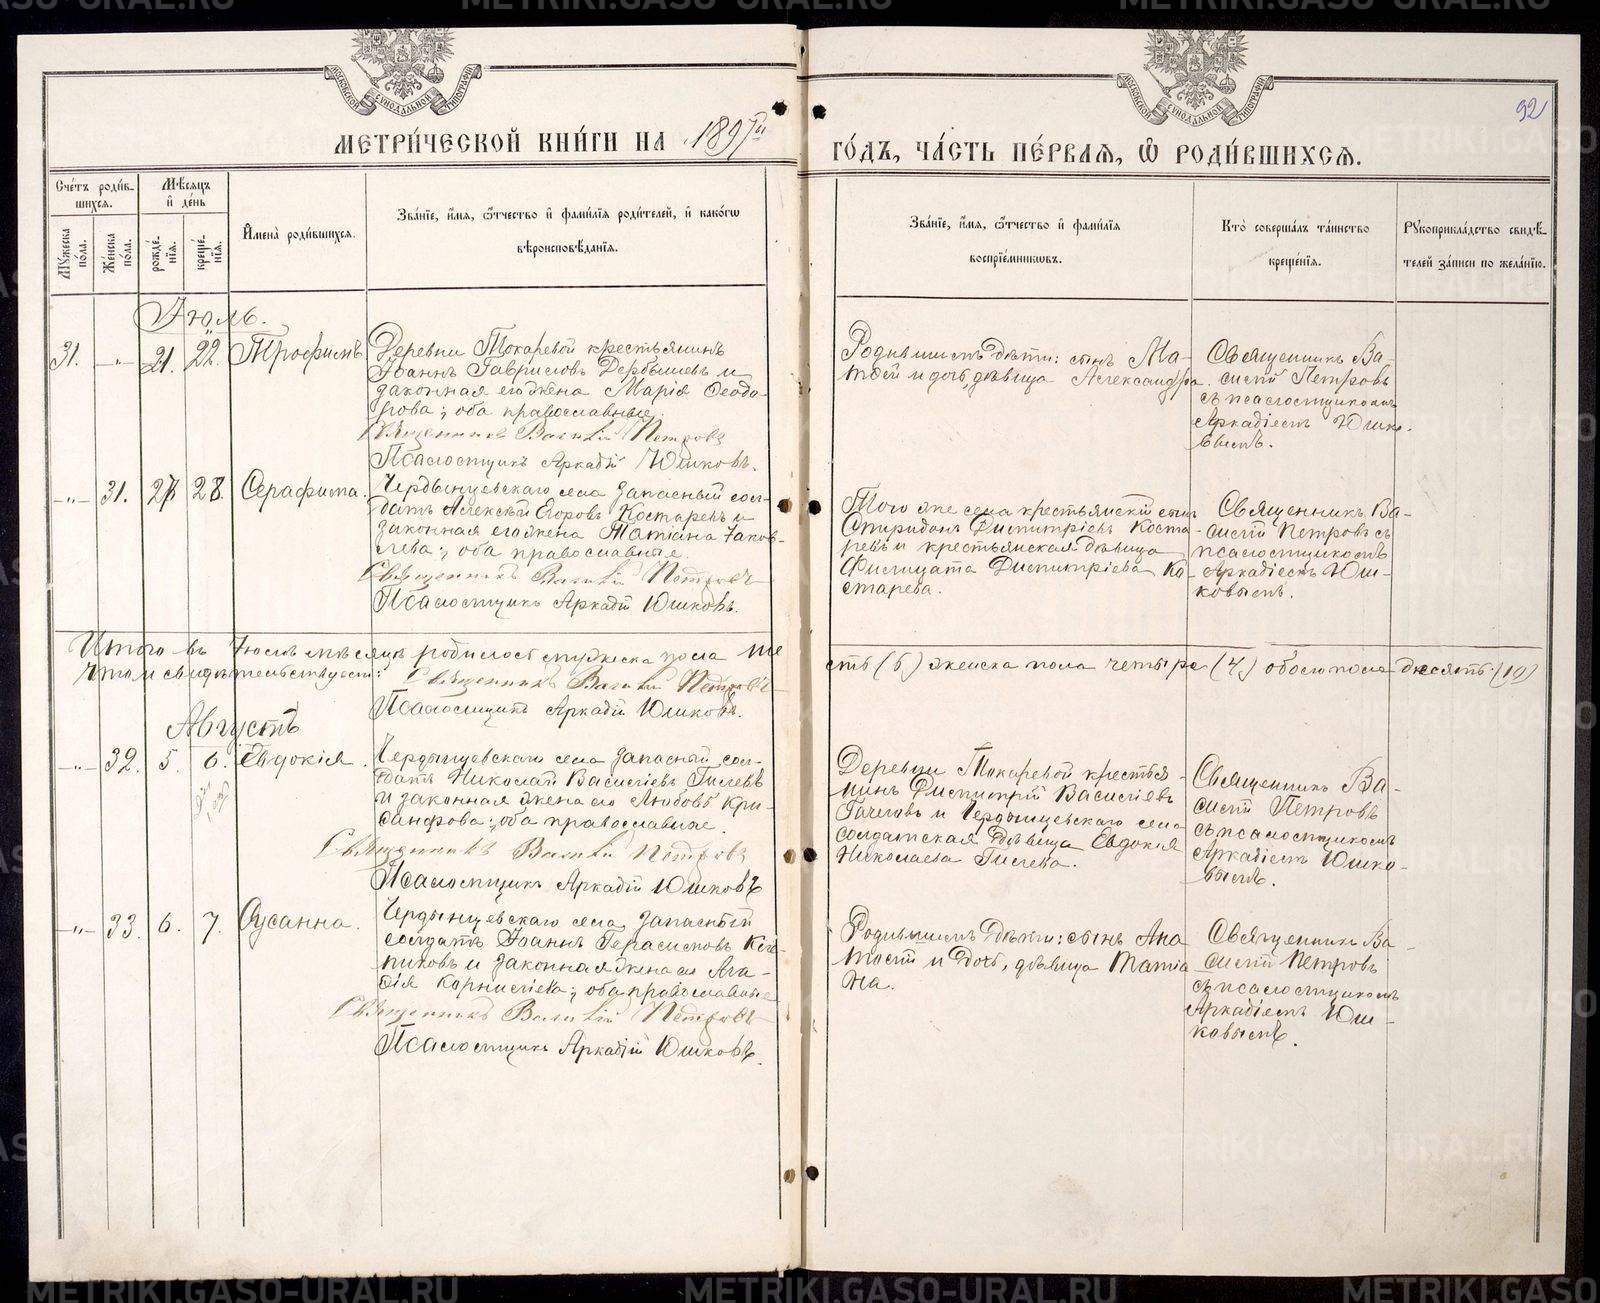 МЕТРИ́ЧЕСКОЙ КНИ́ГИ НА 1897й
ГО́ДЪ, ЧА́СТЬ ПЕ́РВАЯ, Ѽ РОДИ́ВШИХСЯ.
92
Сче́тъ роди́в-
шихся.
Мѣсяцъ
и́ де́нь
Мꙋжеска по́ла.
Же́нска по́ла.
рожде́-
нїя.
креще́-
нїя.
И҆мена̀ роди́вшихся.
Зва́нїе, и҆́мя, ѻ҆́тчество и҆ фами́лїя роди́телей, и҆ како́гѡ
вѣроисповѣ́данїя.
Зва́нїе, и҆́мя, ѻ҆́тчество и҆ фами́лїя
воспрїе́мникѡвъ.
Кто̀ соверша́лъ та́инство
креще́нїя.
Рꙋкоприкла́дство свидѣ́-
телей за́писи по жела́нїю.
Іюль.
31. -„- 21. 22. Трофимъ
Деревни Токаревой крестьянинъ
Іоаннъ Гавриловъ Дербышевъ и
законная его жена Марія Ѳеодо-
рова; оба православные.
Священникъ Василій Петровъ
Псаломщикъ Аркадій Юшковъ.
Родившимъ дѣти: сынъ Ма-
тѳей и дочь, дѣвица Александра.
Священникъ Ва-
силій Петровъ
съ псаломщикомъ
Аркадіемъ Юшко-
вымъ.
-„- 31. 27. 28. Серафима.
Чердынцевскаго села запасный сол-
датъ Алексѣй Егоровъ Костаревъ и
законная его жена Татіана Іаков-
лева; оба православные.
Священникъ Василій Петровъ
Псаломщикъ Аркадій Юшковъ.
Того же села крестьянскій сынъ
Спиридонъ Димитріевъ Коста-
ревъ и крестьянская дѣвица
Филицата Димитріева Ко-
старева.
Священникъ Ва-
силій Петровъ съ
псаломщикомъ
Аркадіемъ Юш-
ковымъ.
Итого въ Іюлѣ мѣсяцѣ родилось мужеска пола ше
сть (6) женска пола четыре (4) обоего пола десять (10)
Въ томъ свидѣтельствуемъ: Священникъ Василій Петровъ
Псаломщикъ Аркадій Юшковъ.
Августъ
-„- 32. 5. 6. Евдокія.
Чердынцевскаго села запасный сол-
датъ Николай Васильевъ Гилевъ
и законная жена его Любовь Кри-
санфова; оба православные.
Священникъ Василій Петровъ
Псаломщикъ Аркадій Юшковъ
Деревни Токаревой крестья-
нинъ Димитрій Васильевъ
и Чердынцевскаго села
солдатская дѣвица Евдокія
Николаева Гилева.
Священникъ Ва-
силій Петровъ
съ псаломщикомъ
Аркадіемъ Юшко-
вымъ.
-„- 33. 6. 7. Сусанна.
Чердынцевскаго села запасный
солдатъ Іоаннъ Герасимовъ
и законная жена его Ага-
ѳія Корниліева; оба православные
Священникъ Василій Петровъ
Псаломщикъ Аркадій Юшковъ.
Родившимъ дѣти: сынъ Ана
толій и дочь, дѣвица Татіа
на.
Священникъ Ва-
силій Петровъ
съ псаломщикомъ
Аркадіемъ Юш-
ковымъ.
METRIKI.GASO-URAL.RU